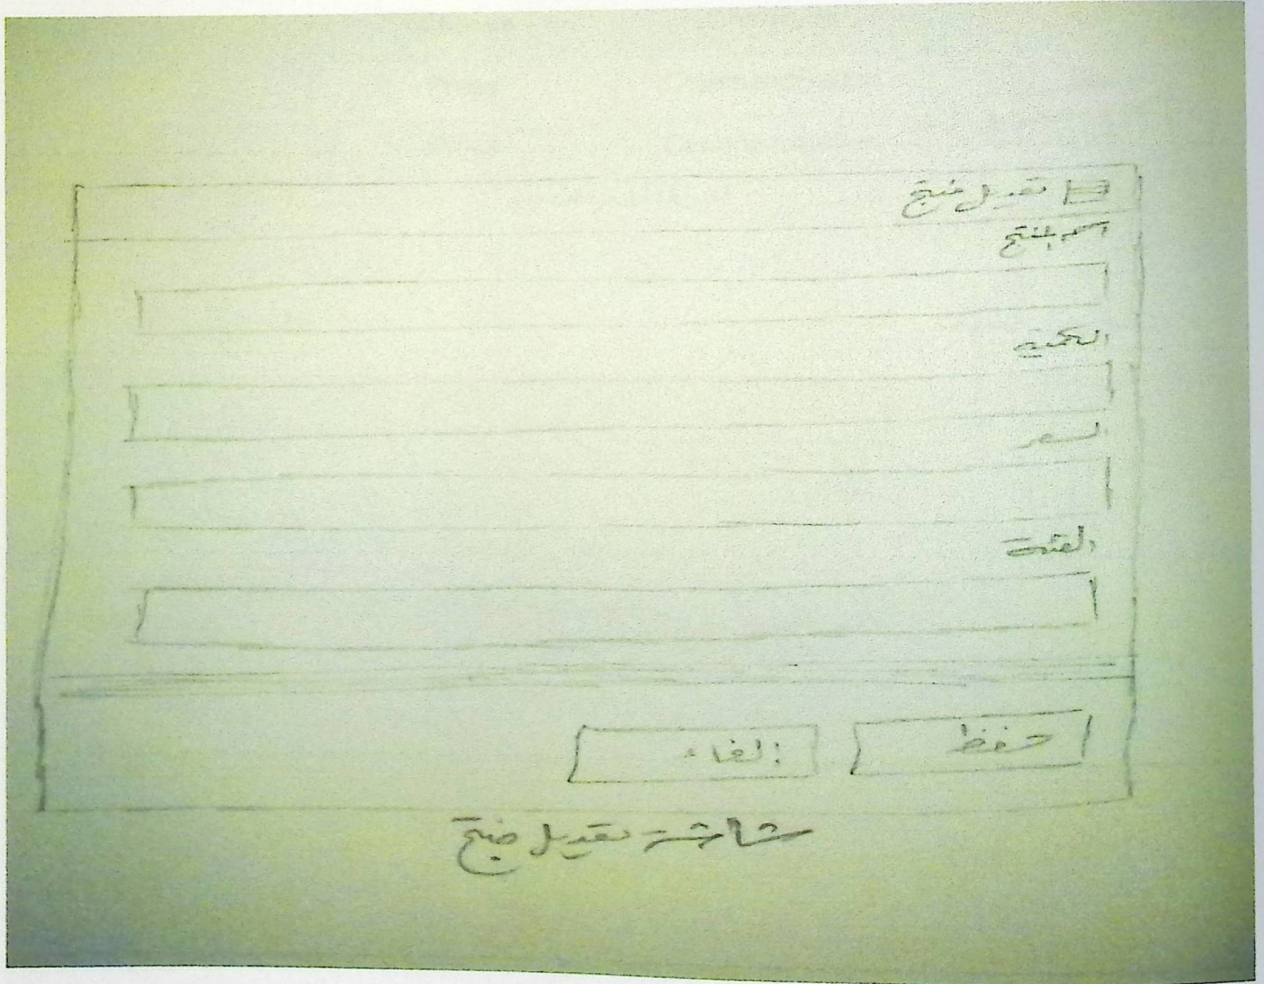 تعديل منتج
اسم المنتج
الكمية
السعر
الفئة
حفظ
إلغاء
شاشة تعديل منتج